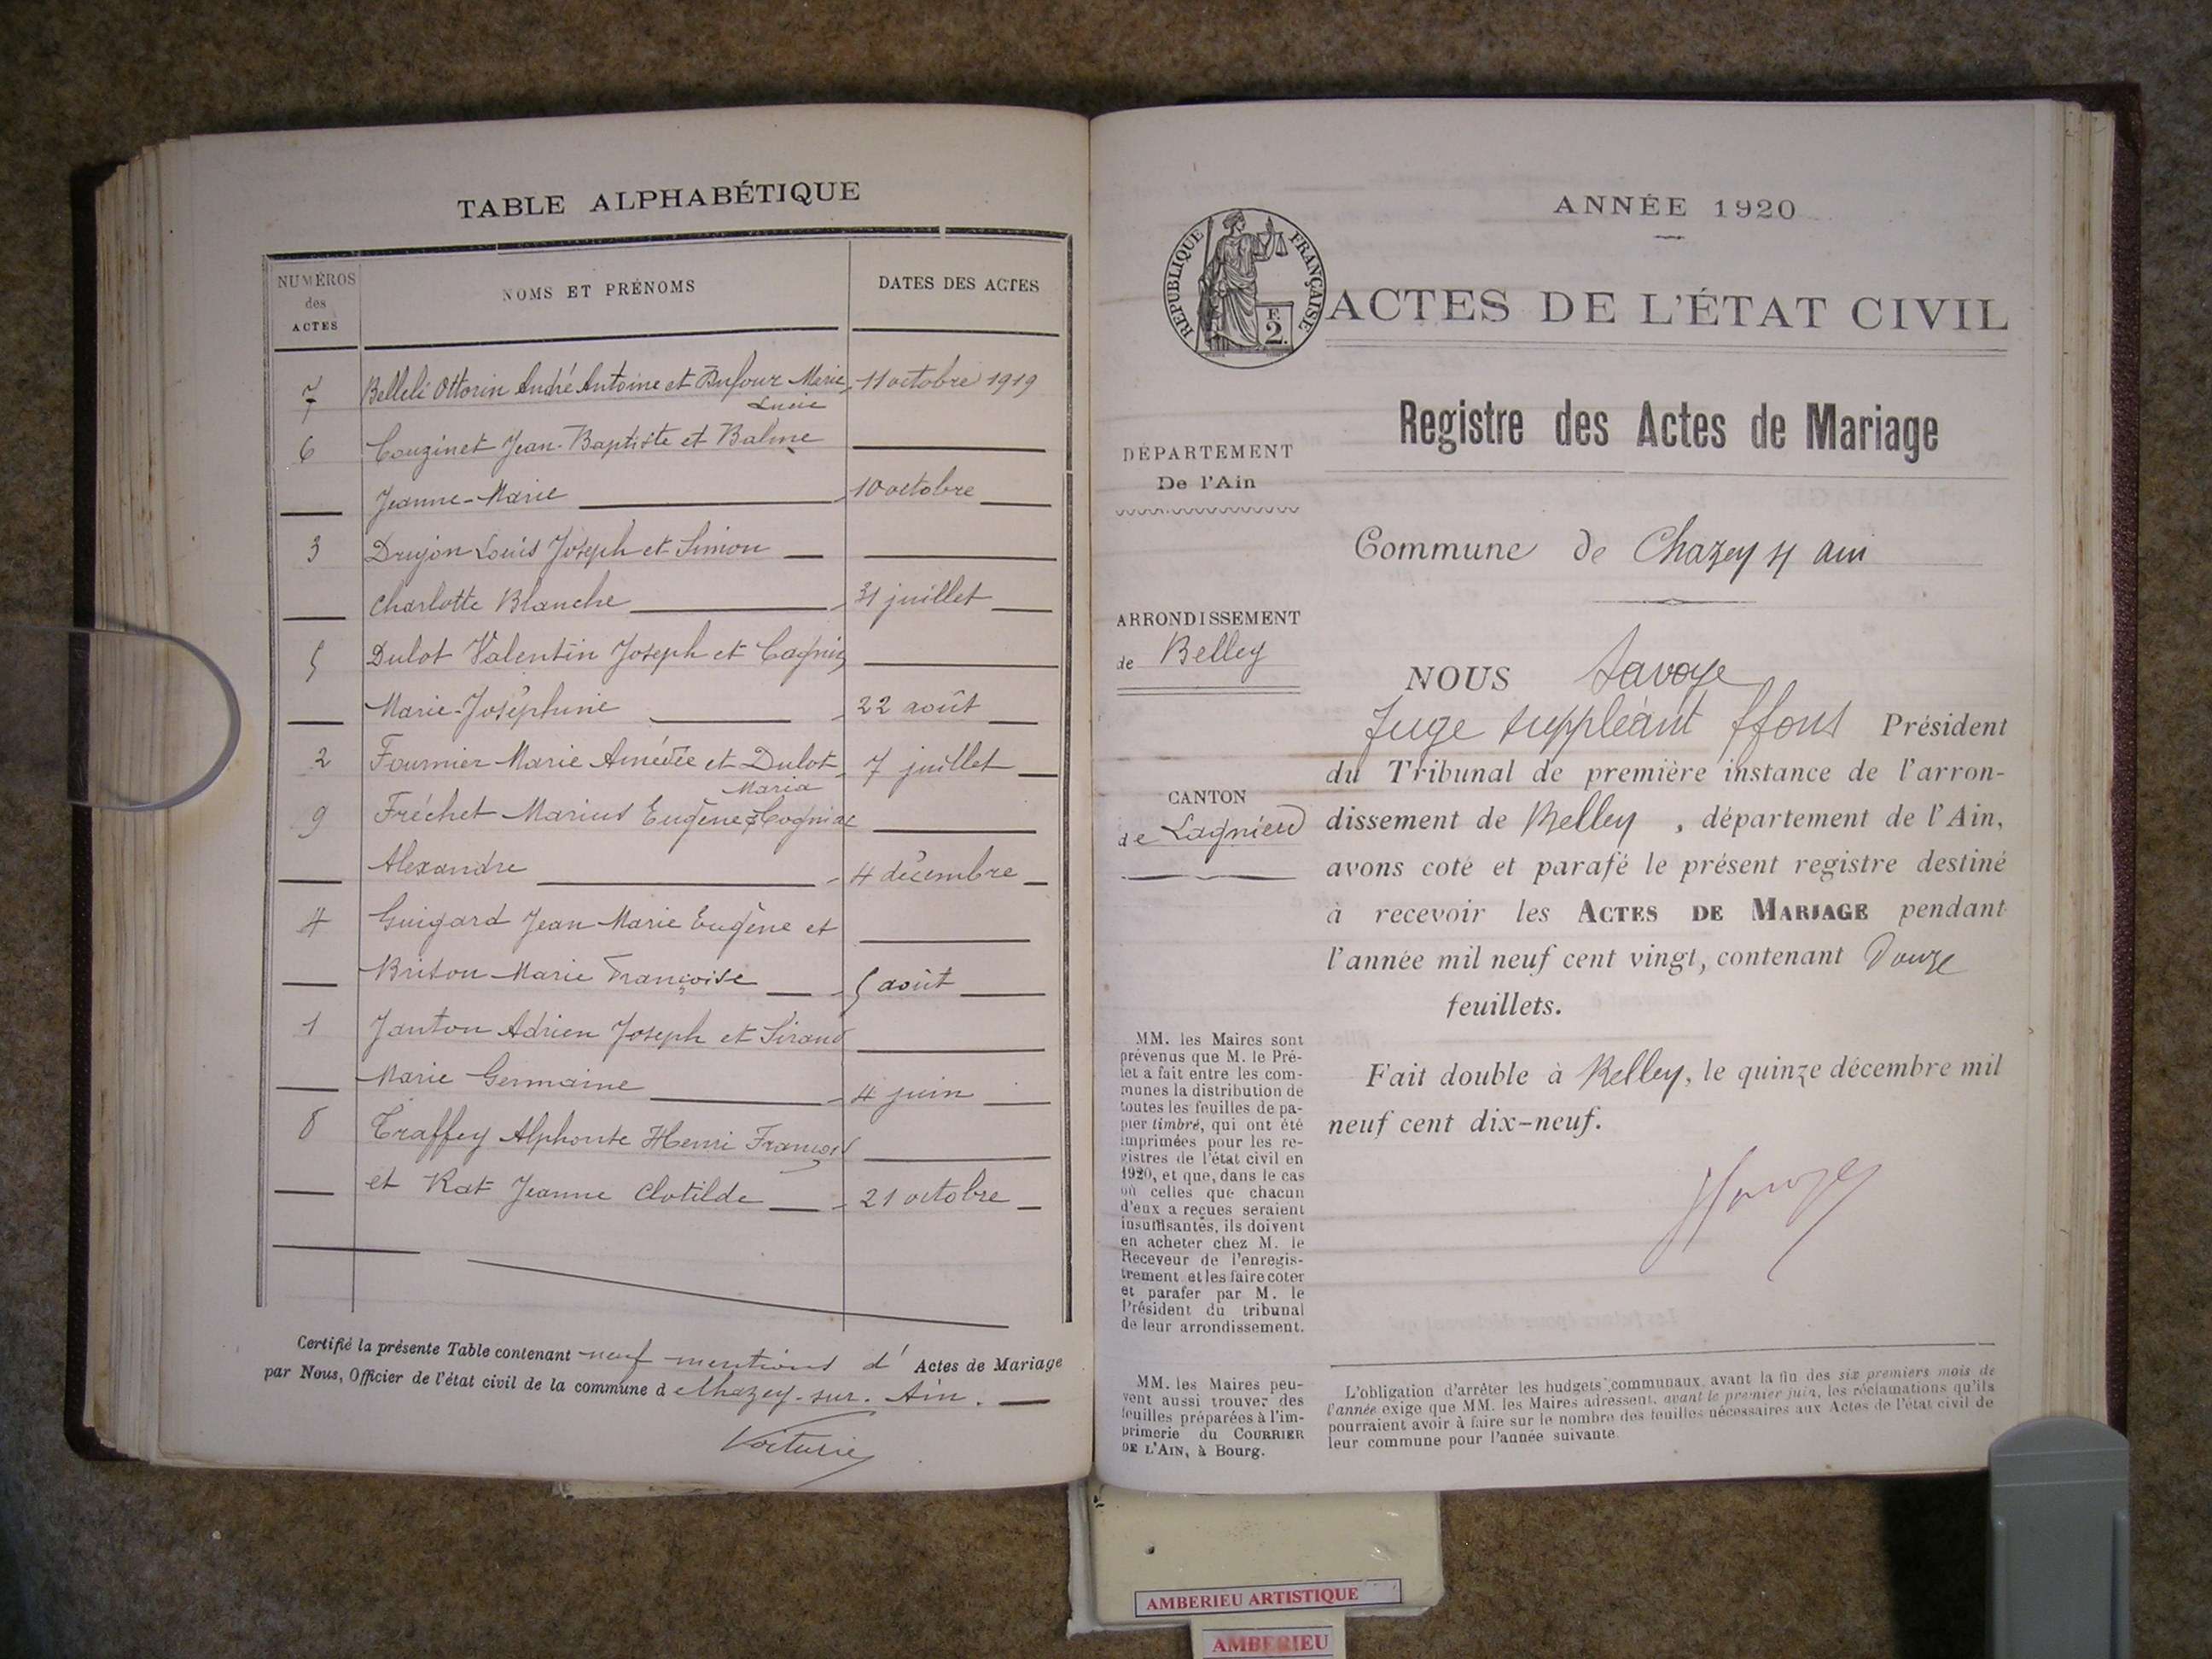 TABLE ALPHABÉTIQUE
NUMÉROS des ACTES
NOMS ET PRÉNOMS
DATES DES ACTES
7 Belleli Ottorin André Antoine et Dufour Marie 11 octobre 1919
Lucie
6 Couzinet Jean-Baptiste et Balme
Jeanne-Marie 10 octobre
3 Drujon Louis Joseph et Simon
Charlotte Blanche 31 juillet
5 Dulot Valentin Joseph et Cagnin
Marie-Joséphine 22 août
2 Fournier Marie Amédée et Dulot 7 juillet
Maria
9 Fréchet Marius Eugène & Cogniat
Alexandre 4 décembre
4 Guigard Jean Marie Eugène et
Briton Marie Françoise 5 août
1 Janton Adrien Joseph et Siraud
Marie Germaine 4 juin
8 Traffey Alphonse Henri François
et Rat Jeanne Clotilde 21 octobre
Certifié la présente Table contenant neuf mentions d' Actes de Mariage
par Nous, Officier de l'état civil de la commune d e Chazey-sur-Ain.
Voiturie
ANNÉE 1920
RÉPUBLIQUE FRANÇAISE
F. 2.
ACTES DE L'ÉTAT CIVIL
Registre des Actes de Mariage
DÉPARTEMENT
De l'Ain
Commune de Chazey s/ ain
ARRONDISSEMENT
de Belley
NOUS Savoye
Juge suppléant ffons Président
du Tribunal de première instance de l'arron-
CANTON
de Lagnieu
dissement de Belley, département de l'Ain,
avons coté et parafé le présent registre destiné
à recevoir les ACTES DE MARIAGE pendant
l'année mil neuf cent vingt, contenant Douze
feuillets.
Fait double à Belley, le quinze décembre mil
neuf cent dix-neuf.
MM. les Maires sont
prévenus que M. le Pré-
fet a fait entre les com-
munes la distribution de
toutes les feuilles de pa-
pier timbré, qui ont été
imprimées pour les re-
gistres de l'état civil en
1920, et que, dans le cas
où celles que chacun
d'eux a reçues seraient
insuffisantes, ils doivent
en acheter chez M. le
Receveur de l'enregis-
trement et les faire coter
et parafer par M. le
Président du tribunal
de leur arrondissement.
MM. les Maires peu-
vent aussi trouver des
feuilles préparées à l'im-
primerie du COURRIER
DE L'AIN, à Bourg.
L'obligation d'arrêter les budgets communaux avant la fin des six premiers mois de
l'année exige que MM. les Maires adressent, avant le premier juin, les réclamations qu'ils
pourraient avoir à faire sur le nombre des feuilles nécessaires aux Actes de l'état civil de
leur commune pour l'année suivante.
AMBERIEU ARTISTIQUE
AMBERIEU